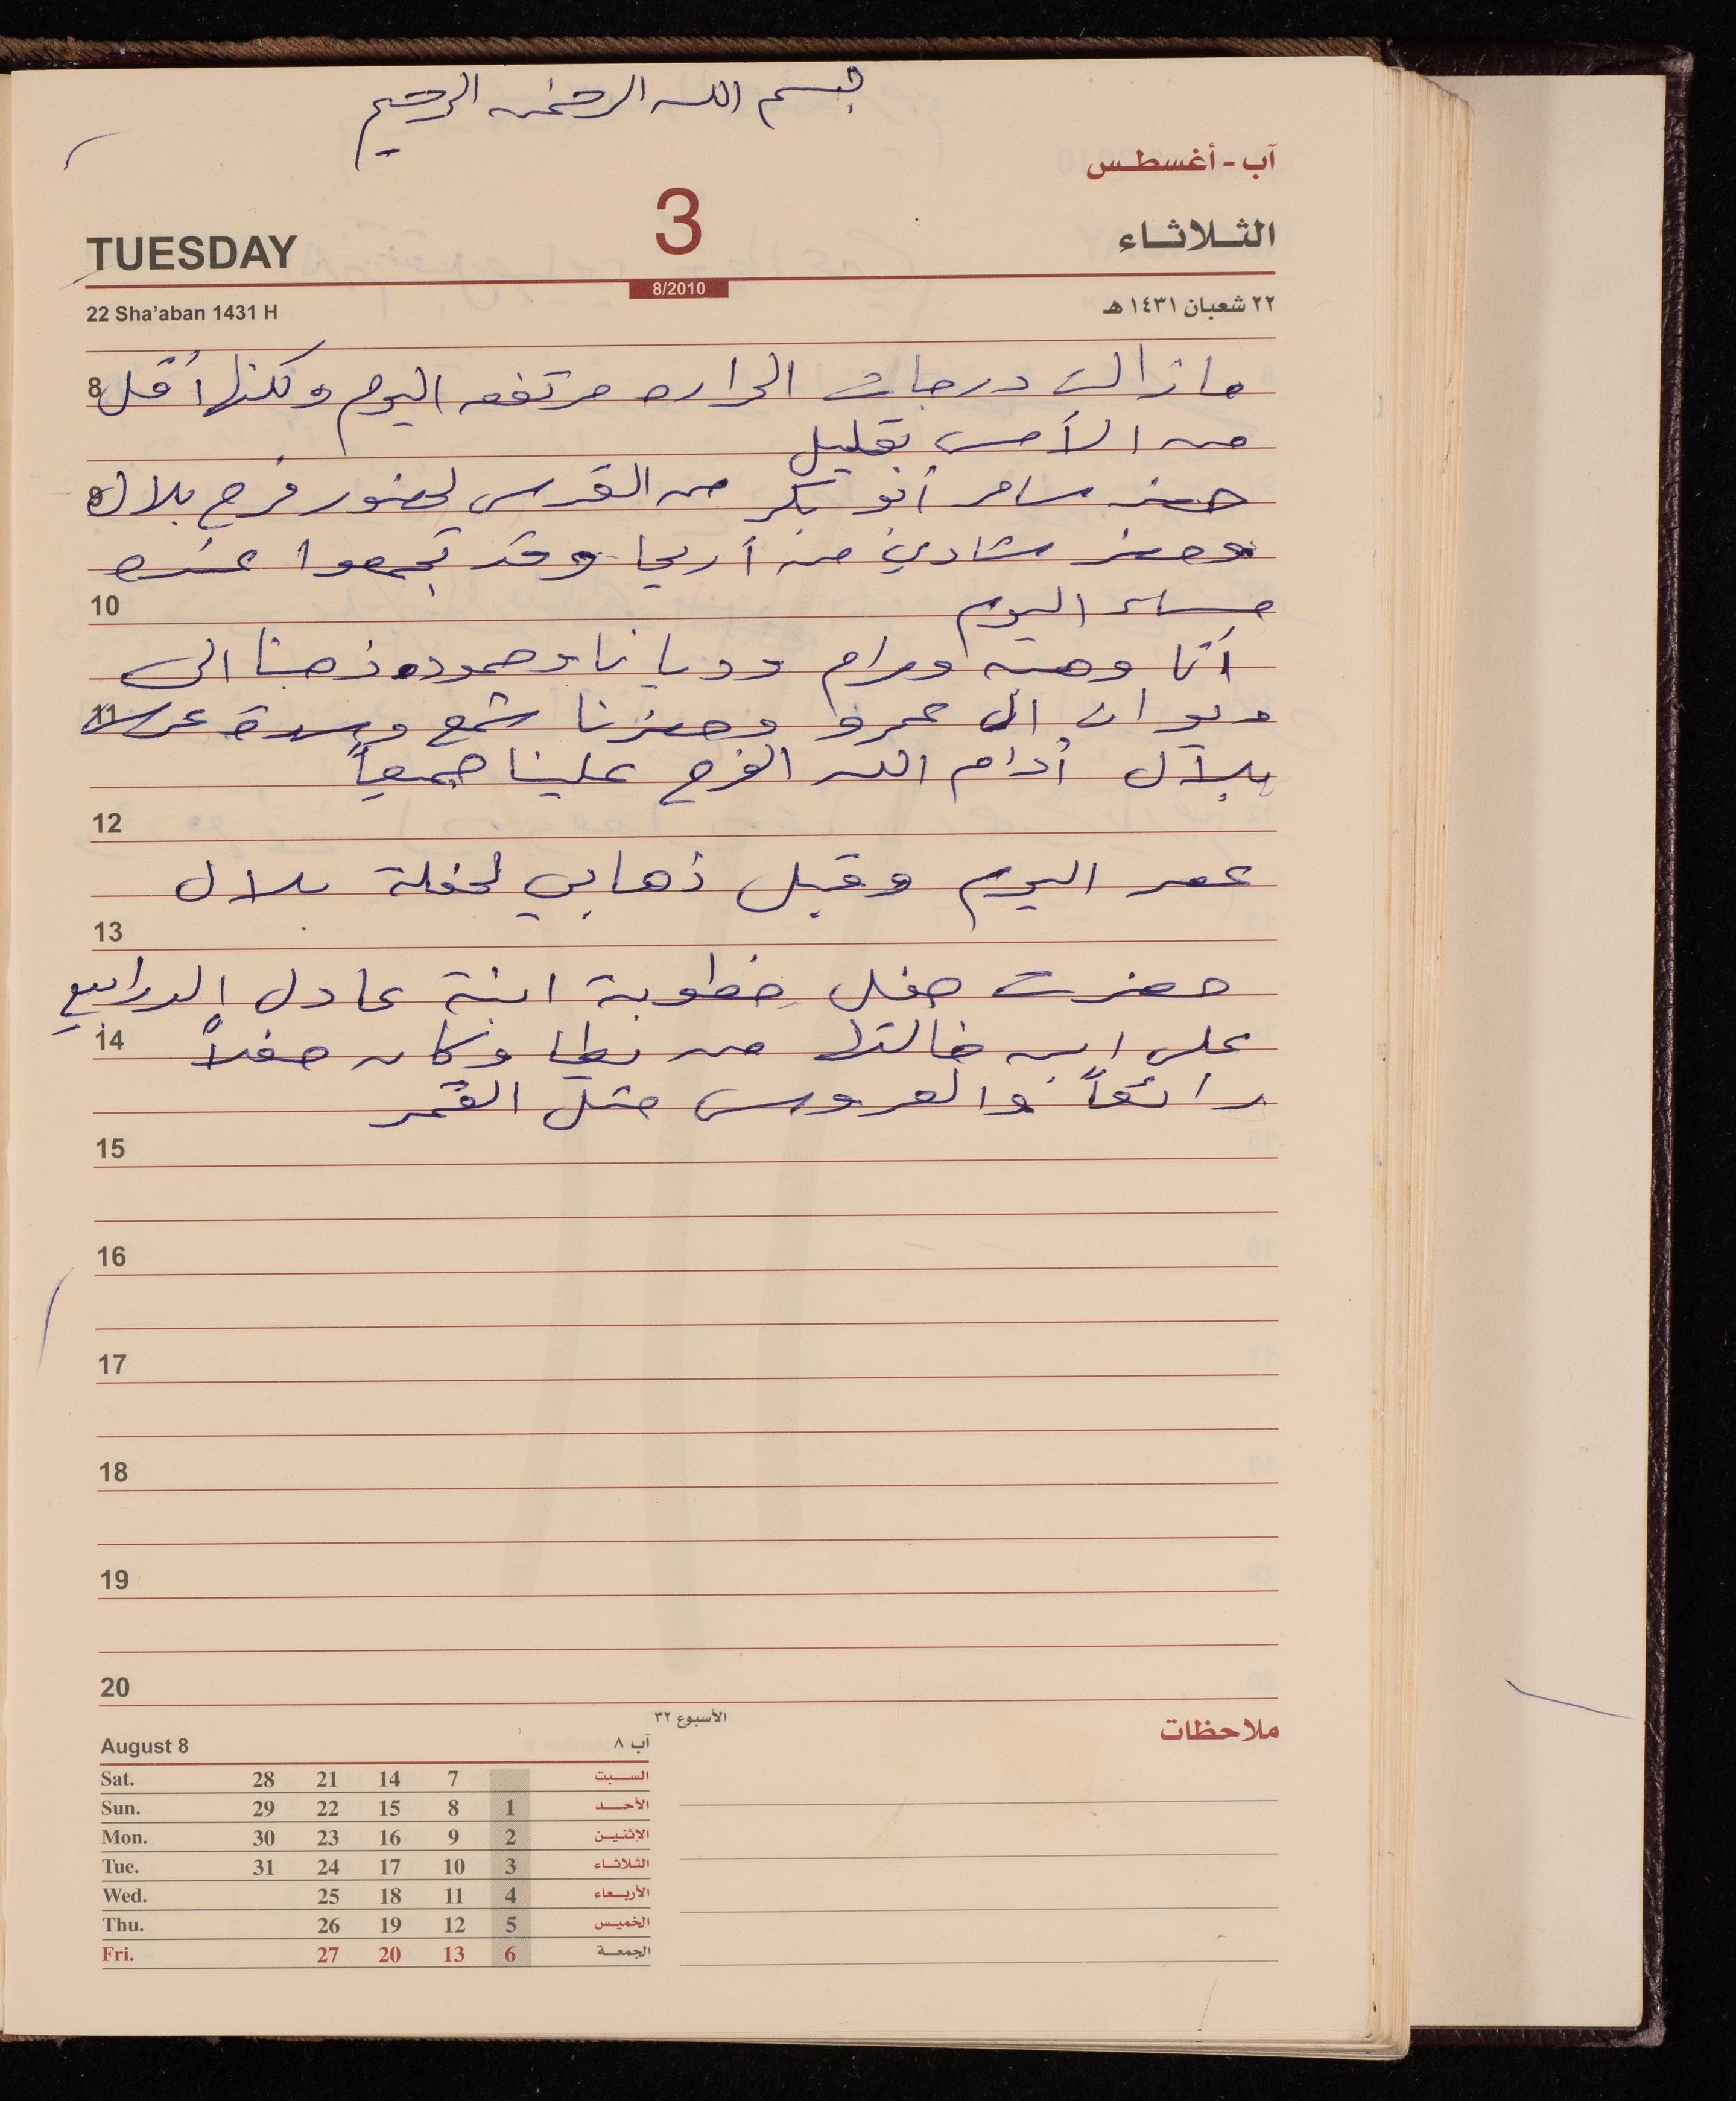 بسم الله الرحمن الرحيم
آب - أغسطس
TUESDAY 3 الثلاثاء
8/2010
22 Sha'aban 1431 H ٢٢ شعبان ١٤٣١ هـ
8 مازالت درجات الحراره مرتفعه اليوم ولكنها أقل
من الأمس بقليل
9 حضر سامر أبو بكر من القدس لحضور فرح بلال
وحضر شادي من أريحا وقد تجمعوا عنده
10 مساء اليوم
أنا وهبه ومرام وديانا وحموده ذهبنا الى
11 ديوان ال عمرو وحضرنا شمع وسدة عرس
بلال أدام الله الفرح علينا جميعاً
12
عصر اليوم وقبل ذهابي لحفلة بلال
13
حضرت حفل خطوبة ابنة عادل الدرابيع
14 على ابن خالتها من يطا وكان حفلاً
رائعاً والعروس مثل القمر
15
16
17
18
19
20
ملاحظات
الأسبوع ٣٢
August 8 آب ٨
Sat. 28 21 14 7 السبت
Sun. 29 22 15 8 1 الأحد
Mon. 30 23 16 9 2 الإثنين
Tue. 31 24 17 10 3 الثلاثاء
Wed. 25 18 11 4 الأربعاء
Thu. 26 19 12 5 الخميس
Fri. 27 20 13 6 الجمعة